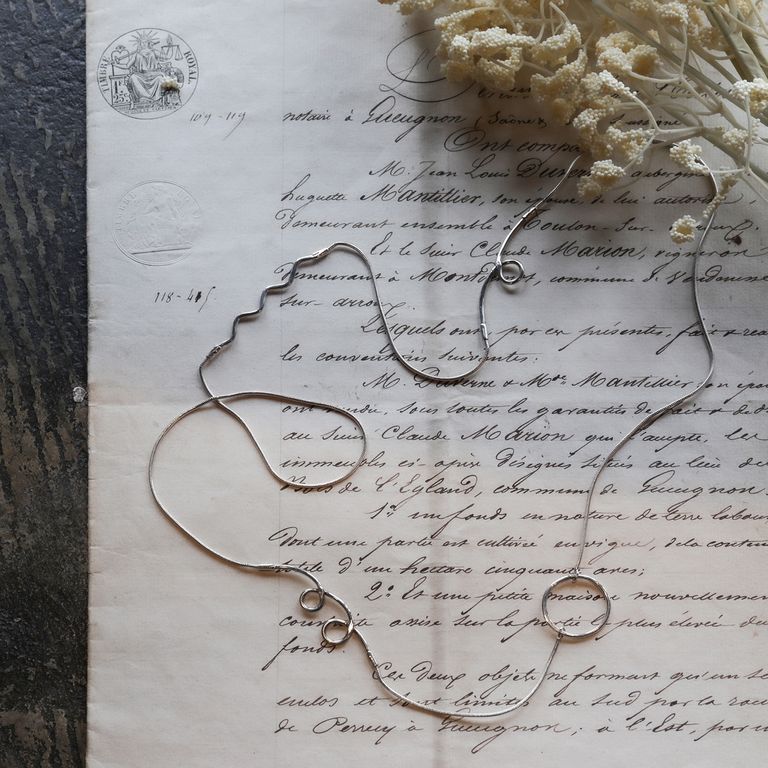 TIMBRE ROYAL
109-119
notaire à Gueugnon, (Saône &
Ont comp
M. Jean Louis Duverne aubergiste
huguette Mantillier, son épouse, de lui autorisée,
Demeurant ensemble à Toulon-Sur-
Et le Sieur Claude Marion, vigneron
Demeurant à commune de Vendenesse
118-
sur-arroux
Lesquels ont, par ces présentes, fait &
les conventions suivantes:
M. Duverne & Mde Mantillier, son épouse
ont vendu, sous toutes les garanties de fait & de
au Sieur Claude Marion qui l'accepte, les
immeubles ci-après désignés situés au lieu de
Bois de l'Egland, commune de Gueugnon.
1º un fonds en nature de terre labour
Dont une partie est cultivée en vigne, de la conten
totale d'un hectare cinquante ares;
2º Et une petite maison nouvellement
construite assise sur la partie la plus élevée du
fonds.
Ces Deux objets ne formant qu'un se
enclos et sont limités au sud par la route
de Perrecy à Gueugnon; à l'Est, par